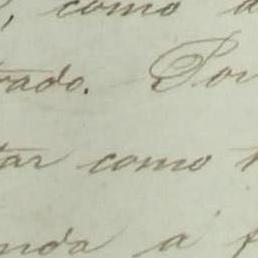 , como a
rado. Por
tar como
nda a f